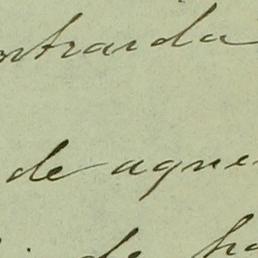 ontraida
de aque
de ha